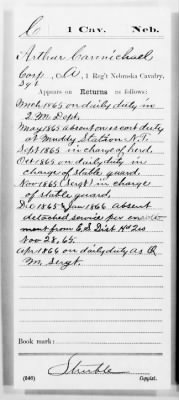 C 1 Cav. Neb.
Arthur Carmichael
Corp, A, 1 Reg't Nebraska Cavalry,
Sgt
Appears on Returns as follows:
Mch 1865 on daily duty in
Q.M. Dept.
May 1865 absent on escort duty
at Muddy Station N.T.
Sept 1865 in charge of herd.
Oct 1865 on daily duty in
charge of stable guard.
Nov 1865 (Sergt) in charge
of stable guard.
Dec 1865 & Jan 1866 absent
detached service per
ment from E.S. Dist Hd Qrs
Nov 28, 65.
Apr 1866 on daily duty as Q
M. Sergt.
Book mark:
(546) Copyist.